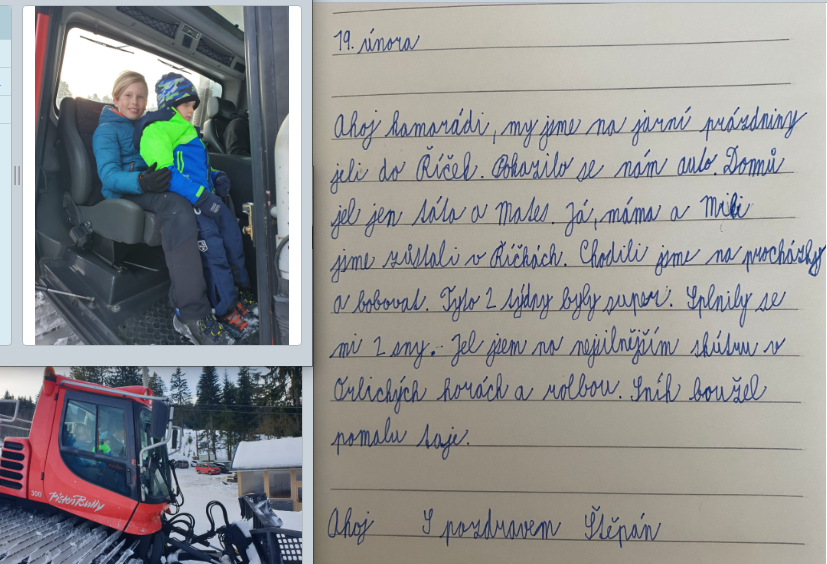 19. února
Ahoj kamarádi, my jsme na jarní prázdniny
jeli do Říček. Pokazilo se nám auto. Domů
jel jen táta a Mates. Já, máma a Miki
jsme zůstali v Říčkách. Chodili jsme na procházky
a bobovat. Tyto 2 týdny byly super. Splnily se
mi 2 sny. Jel jsem na nejsilnějším skútru v
Orlických horách a rolbou. Sníh boužel
pomalu taje.
Ahoj S pozdravem Štěpán
300 PistenBully